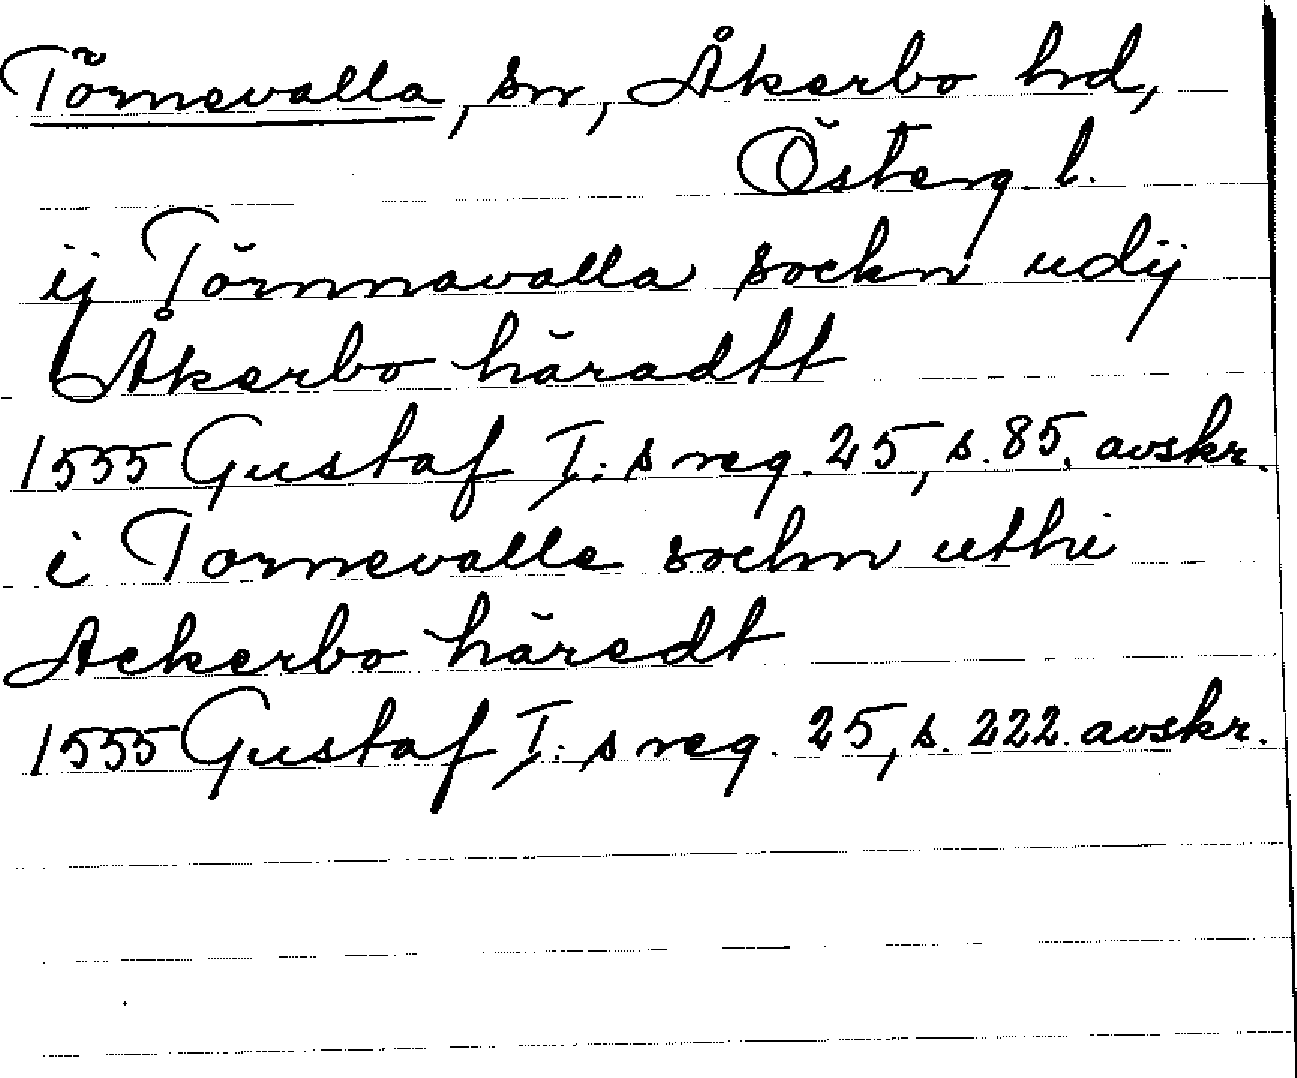 Törnevalla, sn, Åkerbo hd,
Österg. l.
ij Törnnavalla sockn udij
Åkerbo häradtt
1555 Gustaf I:s reg. 25, s. 85. avskr.
i Tornevalle sochn uthi
Ackerbo häredt
1555 Gustaf I:s reg. 25, s. 222. avskr.